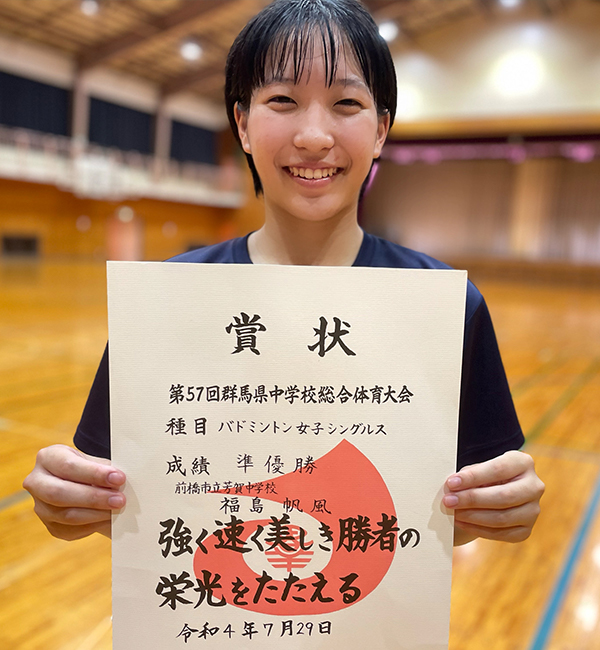 賞状
第57回群馬県中学校総合体育大会
種目 バドミントン女子シングルス
成績 準優勝
前橋市立芳賀中学校
福島帆風
強く速く美しき勝者の
栄光をたたえる
令和4年7月29日